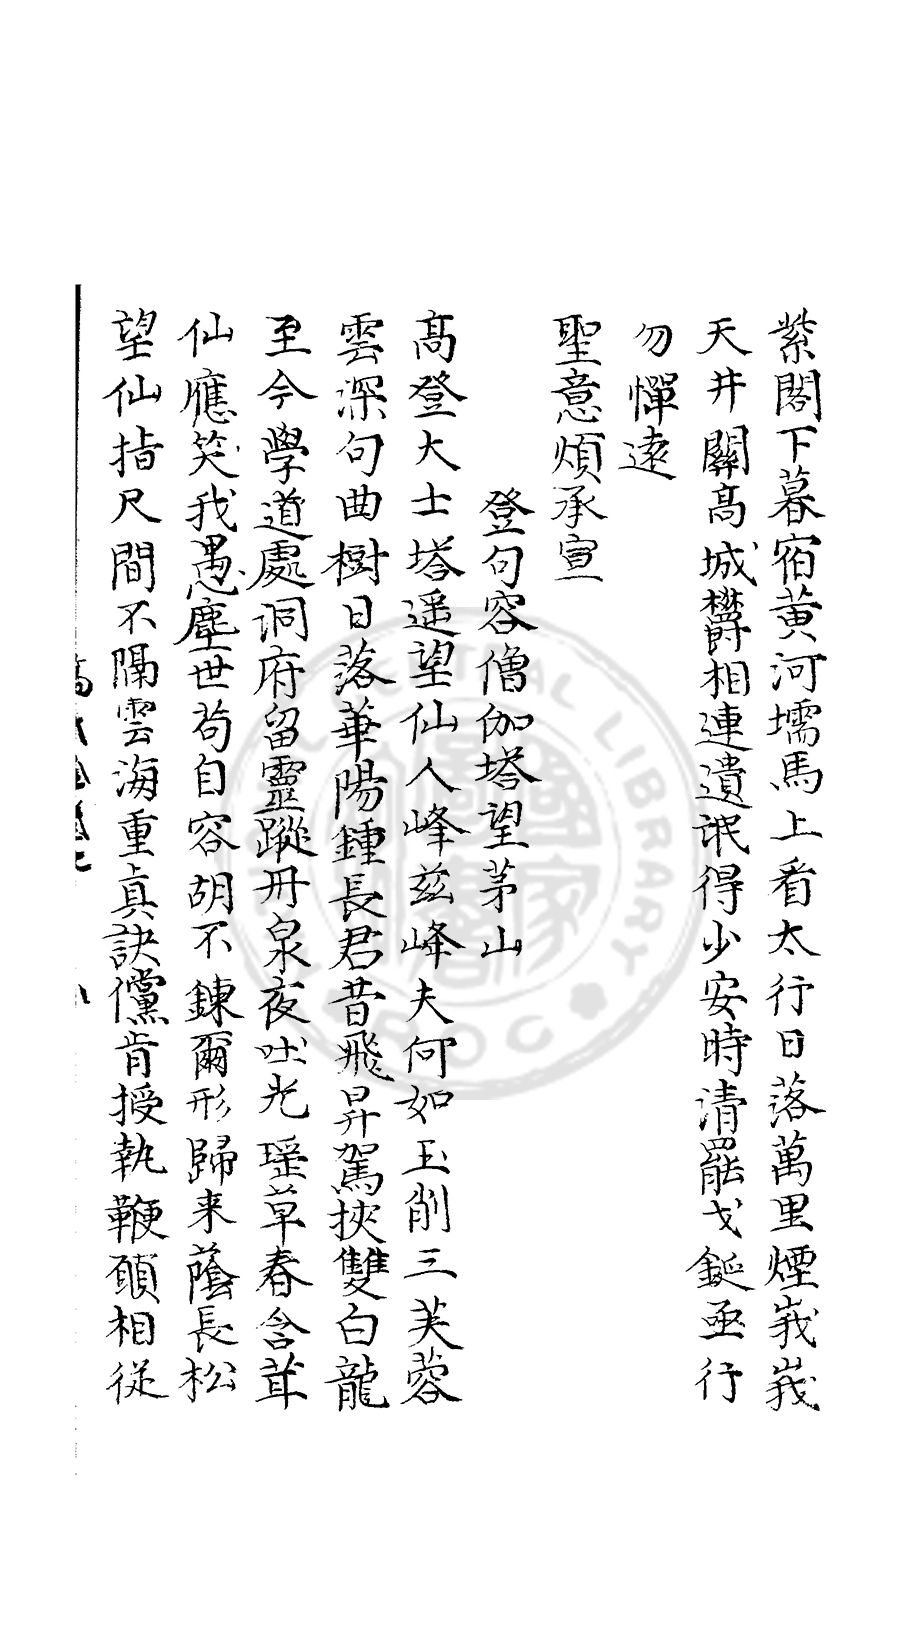 紫閣下暮宿黄河壖馬上看太行日落萬里煙峩峩
天井關高城欝相連遺氓得少安時清罷戈鋋亟行
勿憚遠
聖意煩承宣
登句容僧伽塔望茅山
髙登大士塔遥望仙人峰兹峰夫何如玉削三芙蓉
雲深句曲樹日落華陽鍾長君昔飛昇駕挾雙白龍
至今學道處洞府留靈蹤丹泉夜吐光瑶草春含茸
仙應笑我愚塵世苟自容胡不鍊爾形歸来蔭長松
望仙指尺間不隔雲海重真訣儻肯授執鞭願相従